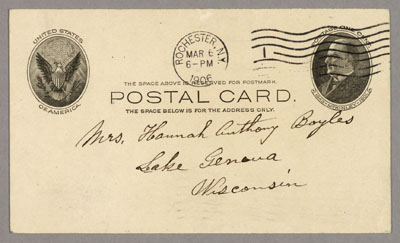 UNITED STATES
OF AMERICA.
ROCHESTER, N.Y.
MAR 6
6-PM
1906
1
THE SPACE ABOVE IS RESERVED FOR POSTMARK.
POSTAL CARD.
THE SPACE BELOW IS FOR THE ADDRESS ONLY.
Mrs. Hannah Anthony Boyles
Lake Geneva
Wisconsin